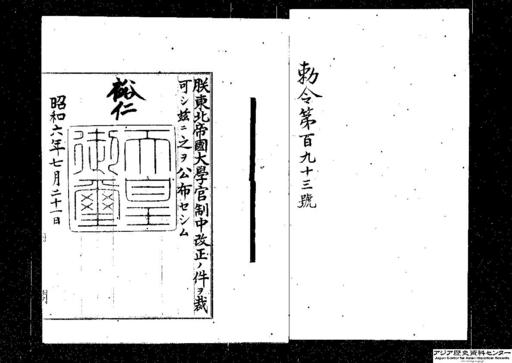 勅令第百九十三號
朕東北帝國大學官制中改正ノ件ヲ裁
可シ玆ニ之ヲ公布セシム
裕仁
天皇
御璽
昭和六年七月二十一日
アジア歴史資料センター
Japan Center for Asian Historical Records